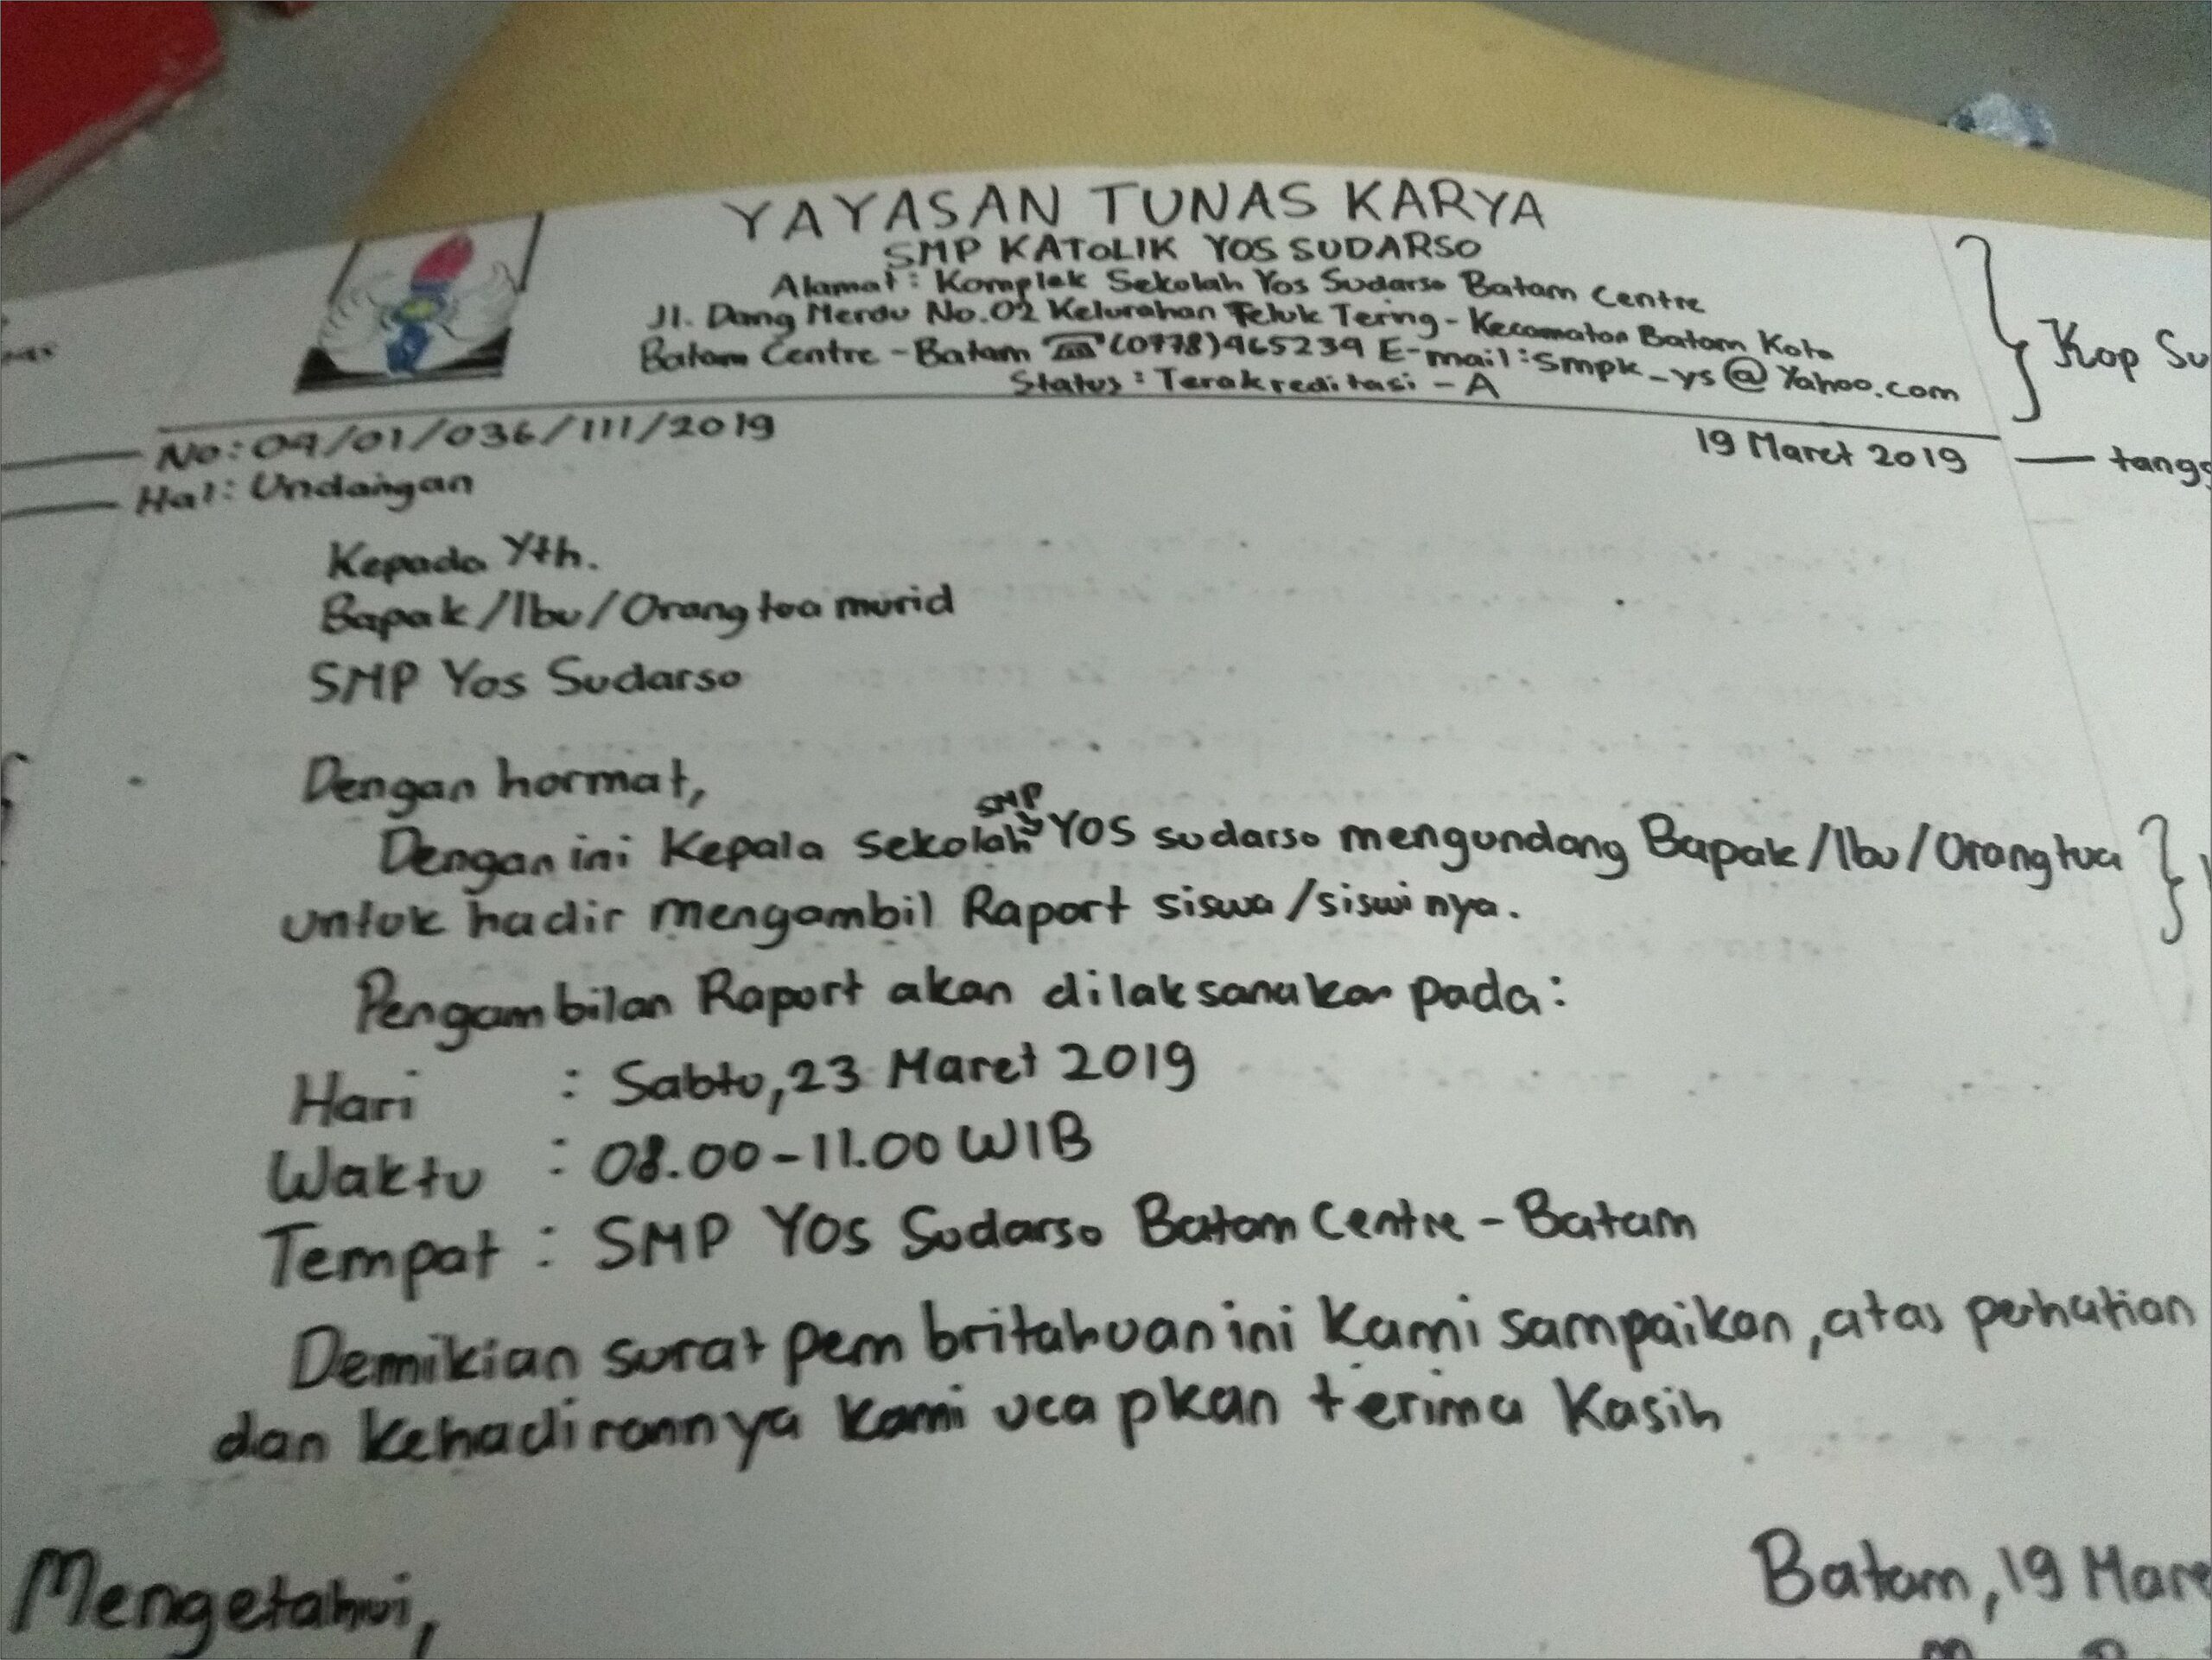 YAYASAN TUNAS KARYA
SMP KATOLIK YOS SUDARSO
Alamat: Komplek Sekolah Yos Sudarso Batam Centre
Jl. Dang Merdu No.02 Kelurahan Teluk Tering - Kecamatan Batam Kota
Batam Centre - Batam ☎ (0778)465239 E-mail: smpk_ys@Yahoo.com
Status: Terakreditasi - A
Kop Su
No: 04/01/036/III/2019 19 Maret 2019 tangg
Hal: Undangan
Kepada Yth.
Bapak/Ibu/Orangtua murid
SMP Yos Sudarso
Dengan hormat,
Dengan ini Kepala Sekolah SMP YOS sudarso mengundang Bapak/Ibu/Orangtua
untuk hadir mengambil Raport siswa/siswinya.
Pengambilan Raport akan dilaksanakan pada:
Hari : Sabtu, 23 Maret 2019
Waktu : 08.00-11.00 WIB
Tempat : SMP YOS Sudarso Batam Centre - Batam
Demikian surat pembritahuan ini kami sampaikan, atas perhatian
dan kehadirannya kami ucapkan terima kasih
Mengetahui, Batam, 19 Mare